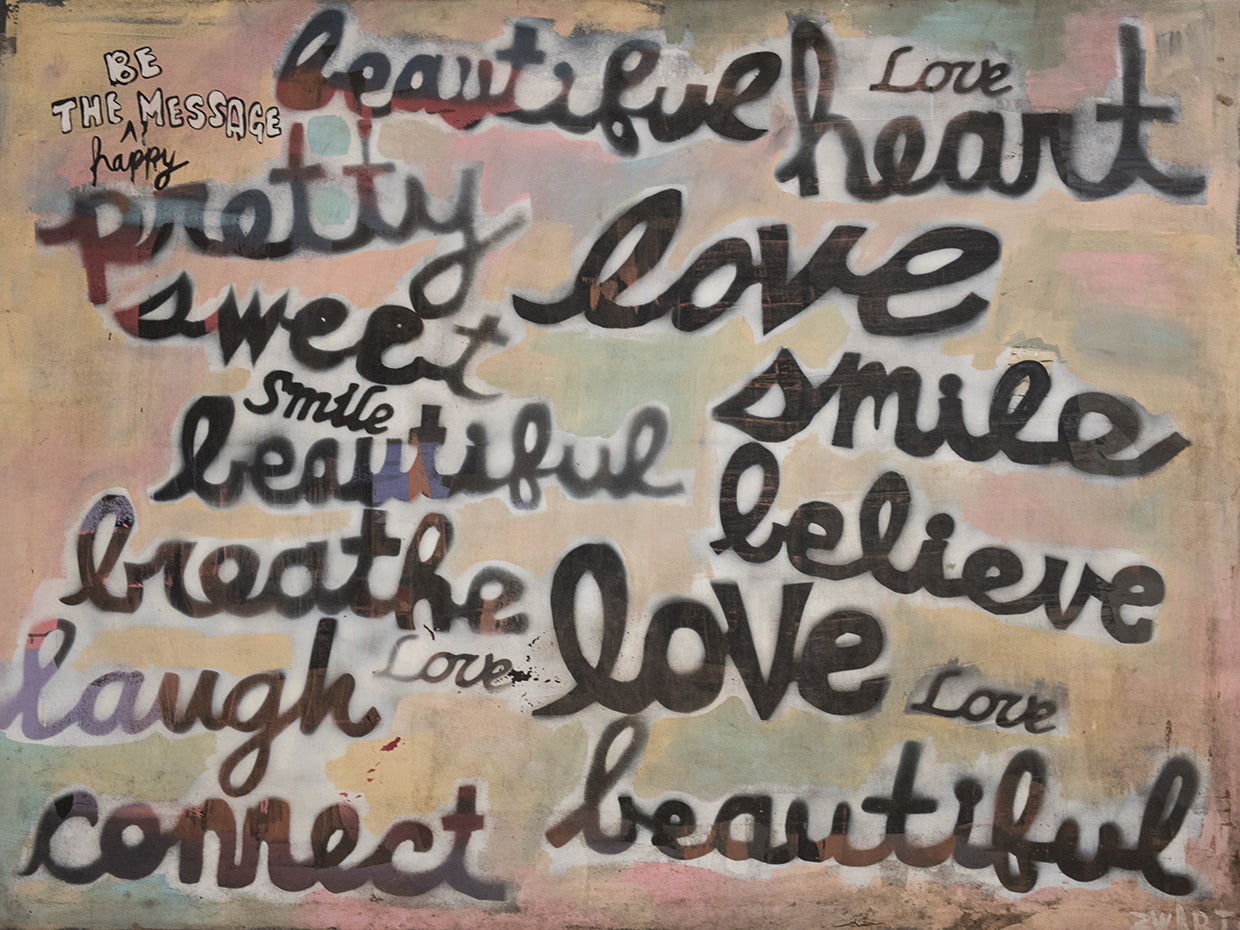 BE
THE MESSAGE
happy
beautiful
heart
Love
pretty
love
sweet
smile
smile
beautiful
believe
breathe
love
laugh
Love
Love
beautiful
connect
ZWART